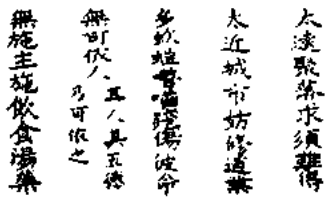 太遠聚落求須難得
太近城市妨修道業
多蚊傷彼命
無可依人其人具五德乃可依之
無施主施飲食湯藥